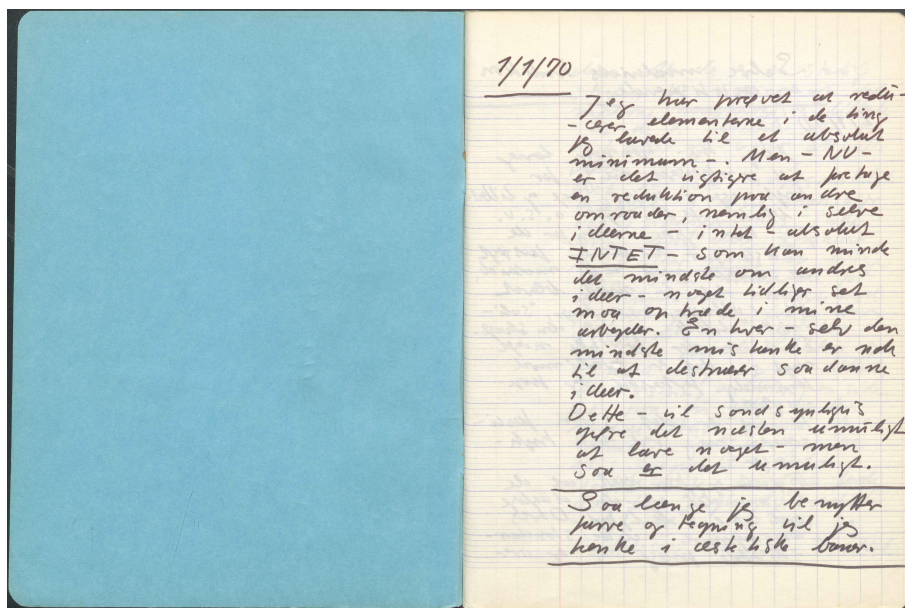 1/1/70
Jeg har prøvet at redu-
-cerer elementerne i de ting
jeg lavede til et absolut
minimum -. Men - NU -
er det vigtigere at foretage
en reduktion paa andre
omraader, nemlig i selve
ideerne - intet - absolut
INTET - som kan minde
det mindste om andres
ideer - noget tidliger set
maa optræde i mine
arbejder. Enhver - selv den
mindste mistanke er nok
til at destruere saadanne
ideer.
Dette - vil sandsynligvis
gøre det næsten umuligt
at lave noget - men
saa er det umuligt.
Saa længe jeg benytter
farve og tegning vil jeg
tænke i æstetiske baner.